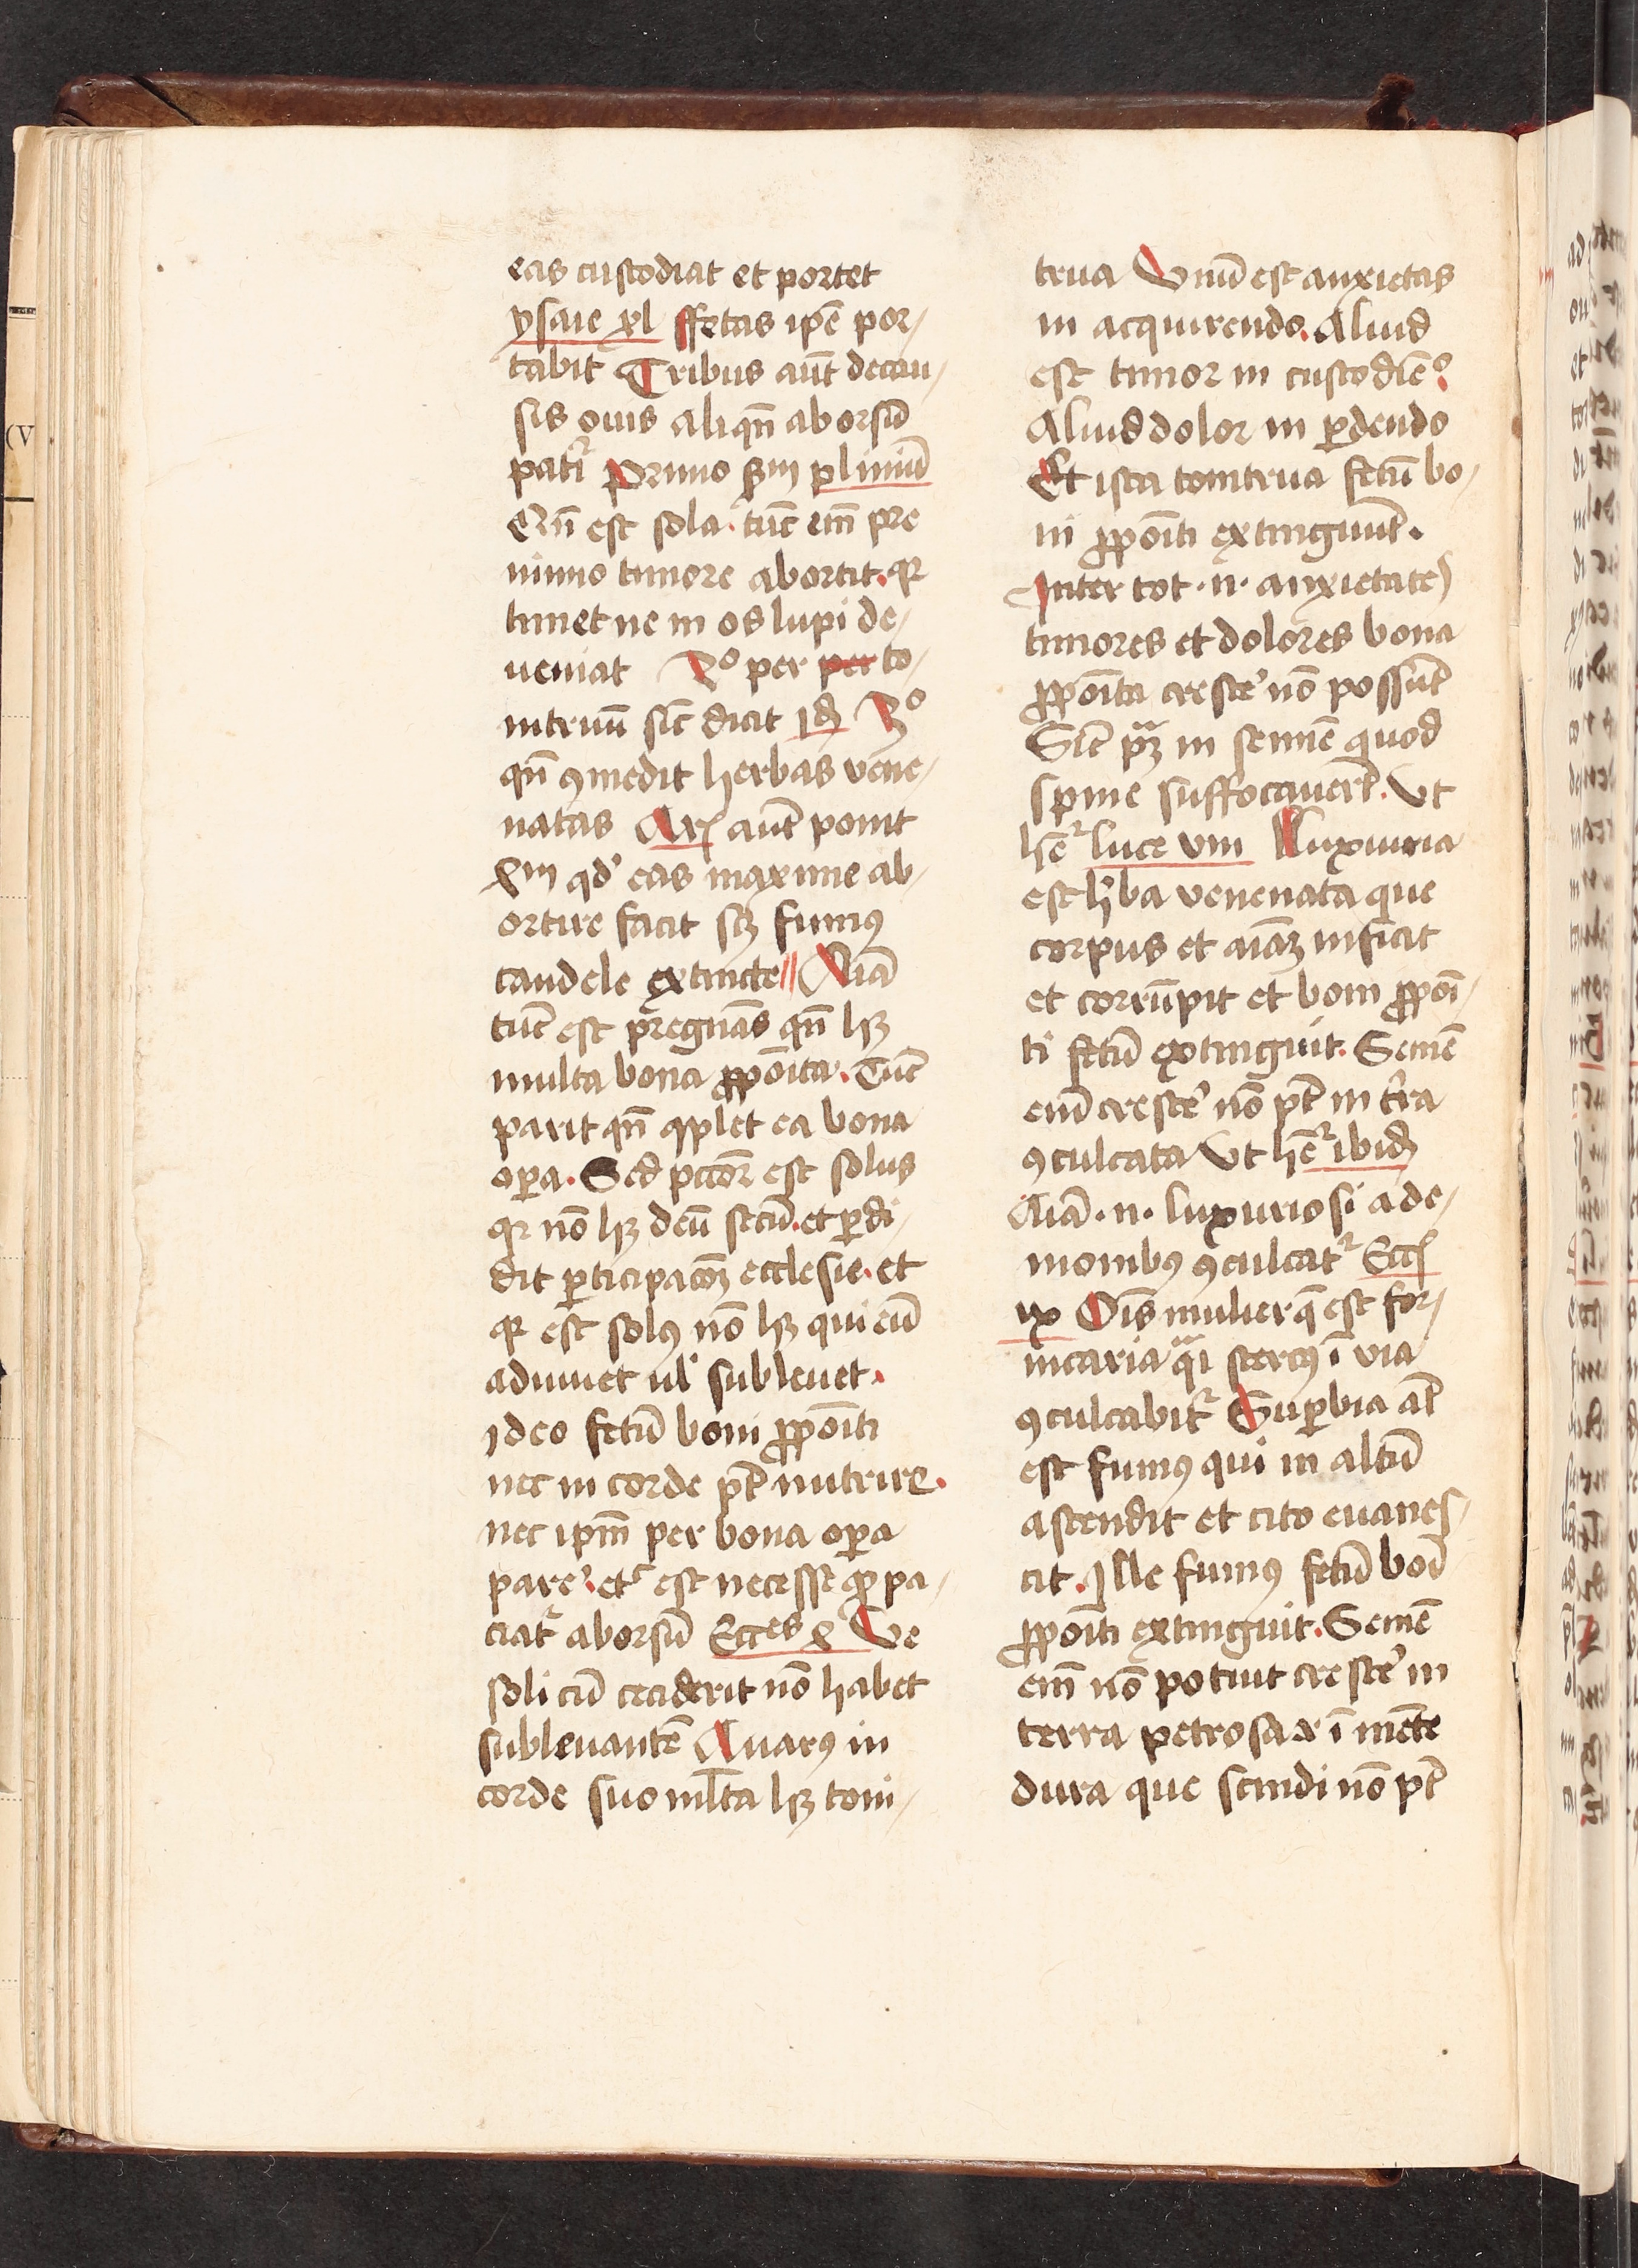 eas custodiat et portet
ysaie xl ffetas ip̄e por/
tabit Tribus aūt decau/
sis ouis aliqn̄ aborsū
patit᷑ Primo ẜm pliniū
Qn̄ est sola. tūc em̄ pre
nimio timore abortit. qꝛ
timet ne in os lupi de/
ueniat 2o per per to/
nitruū sic̄ dicit id̄ 3o
qn̄ ꝯmedit herbas vene/
natas Ar̄ aūt ponit
qd' eas maxime ab/
ortire facit sꝫ fumꝯ
candele extincte // Aīa
tūc est pregnās qn̄ hꝫ
multa bona ꝓpoīta. Tūc
parit qn̄ ꝯplet ea bona
oꝑa. Sed pctōr est solus
qꝛ nō hꝫ deū secū. et ꝑdi/
dit ꝑticipacōꝫ ecclesie. et
qꝛ est solꝯ nō hꝫ qui eū
adiuuet ul' subleuet.
ideo fetū boni ꝓpoīti
nec in corde pt̄ nutrire.
nec ip̄m per bona oꝑa
pare'. et᷑ est necesse ꝙ pa/
ciat᷑ aborsū Ecc͡es x Ve
soli cū ceciderit nō habet
subleuantē Auarꝯ in
corde suo ml̄ta hꝫ toni/
trua Vnū est anxietas
in acquirendo. Aliud
est timor in custodiē⁰.
Aliud dolor in ꝑdendo
Et ista tonitrua fetū bo/
ni ꝓpoīti extinguūt.
Inter tot .n. anxietates
timores et dolores bona
ꝓpoīta cresce' nō possūt
Sic̄ pꝫ in semīe quod
spine suffocauerūt. Vt
hēt᷑ luce viii Luxuria
est h'ba venenata que
corpus et aīaꝫ inficit
et corrūpit et boni ꝓpoī/
ti fetū extinguit. Semē
eniꝫ cresce' nō pt̄ in t'ra
ꝯculcata Vt hēt᷑ ibidꝫ
Aīa .n. luxuriosi a de/
monibꝯ ꝯculcat᷑ Eccī
ix Oīs mulier q̄ est for/
nicaria q̄i stercꝯ ī via
ꝯculcabit᷑ Suꝑbia aūt
est fumꝯ qui in altū
ascendit et cito euanes/
cit. Ille fumꝯ fetū bōi
ꝓpoīti extinguit. Semē
em̄ nō potuit cresce' in
terra petrosa .i. ī mēte
dura que scindi nō pt̄